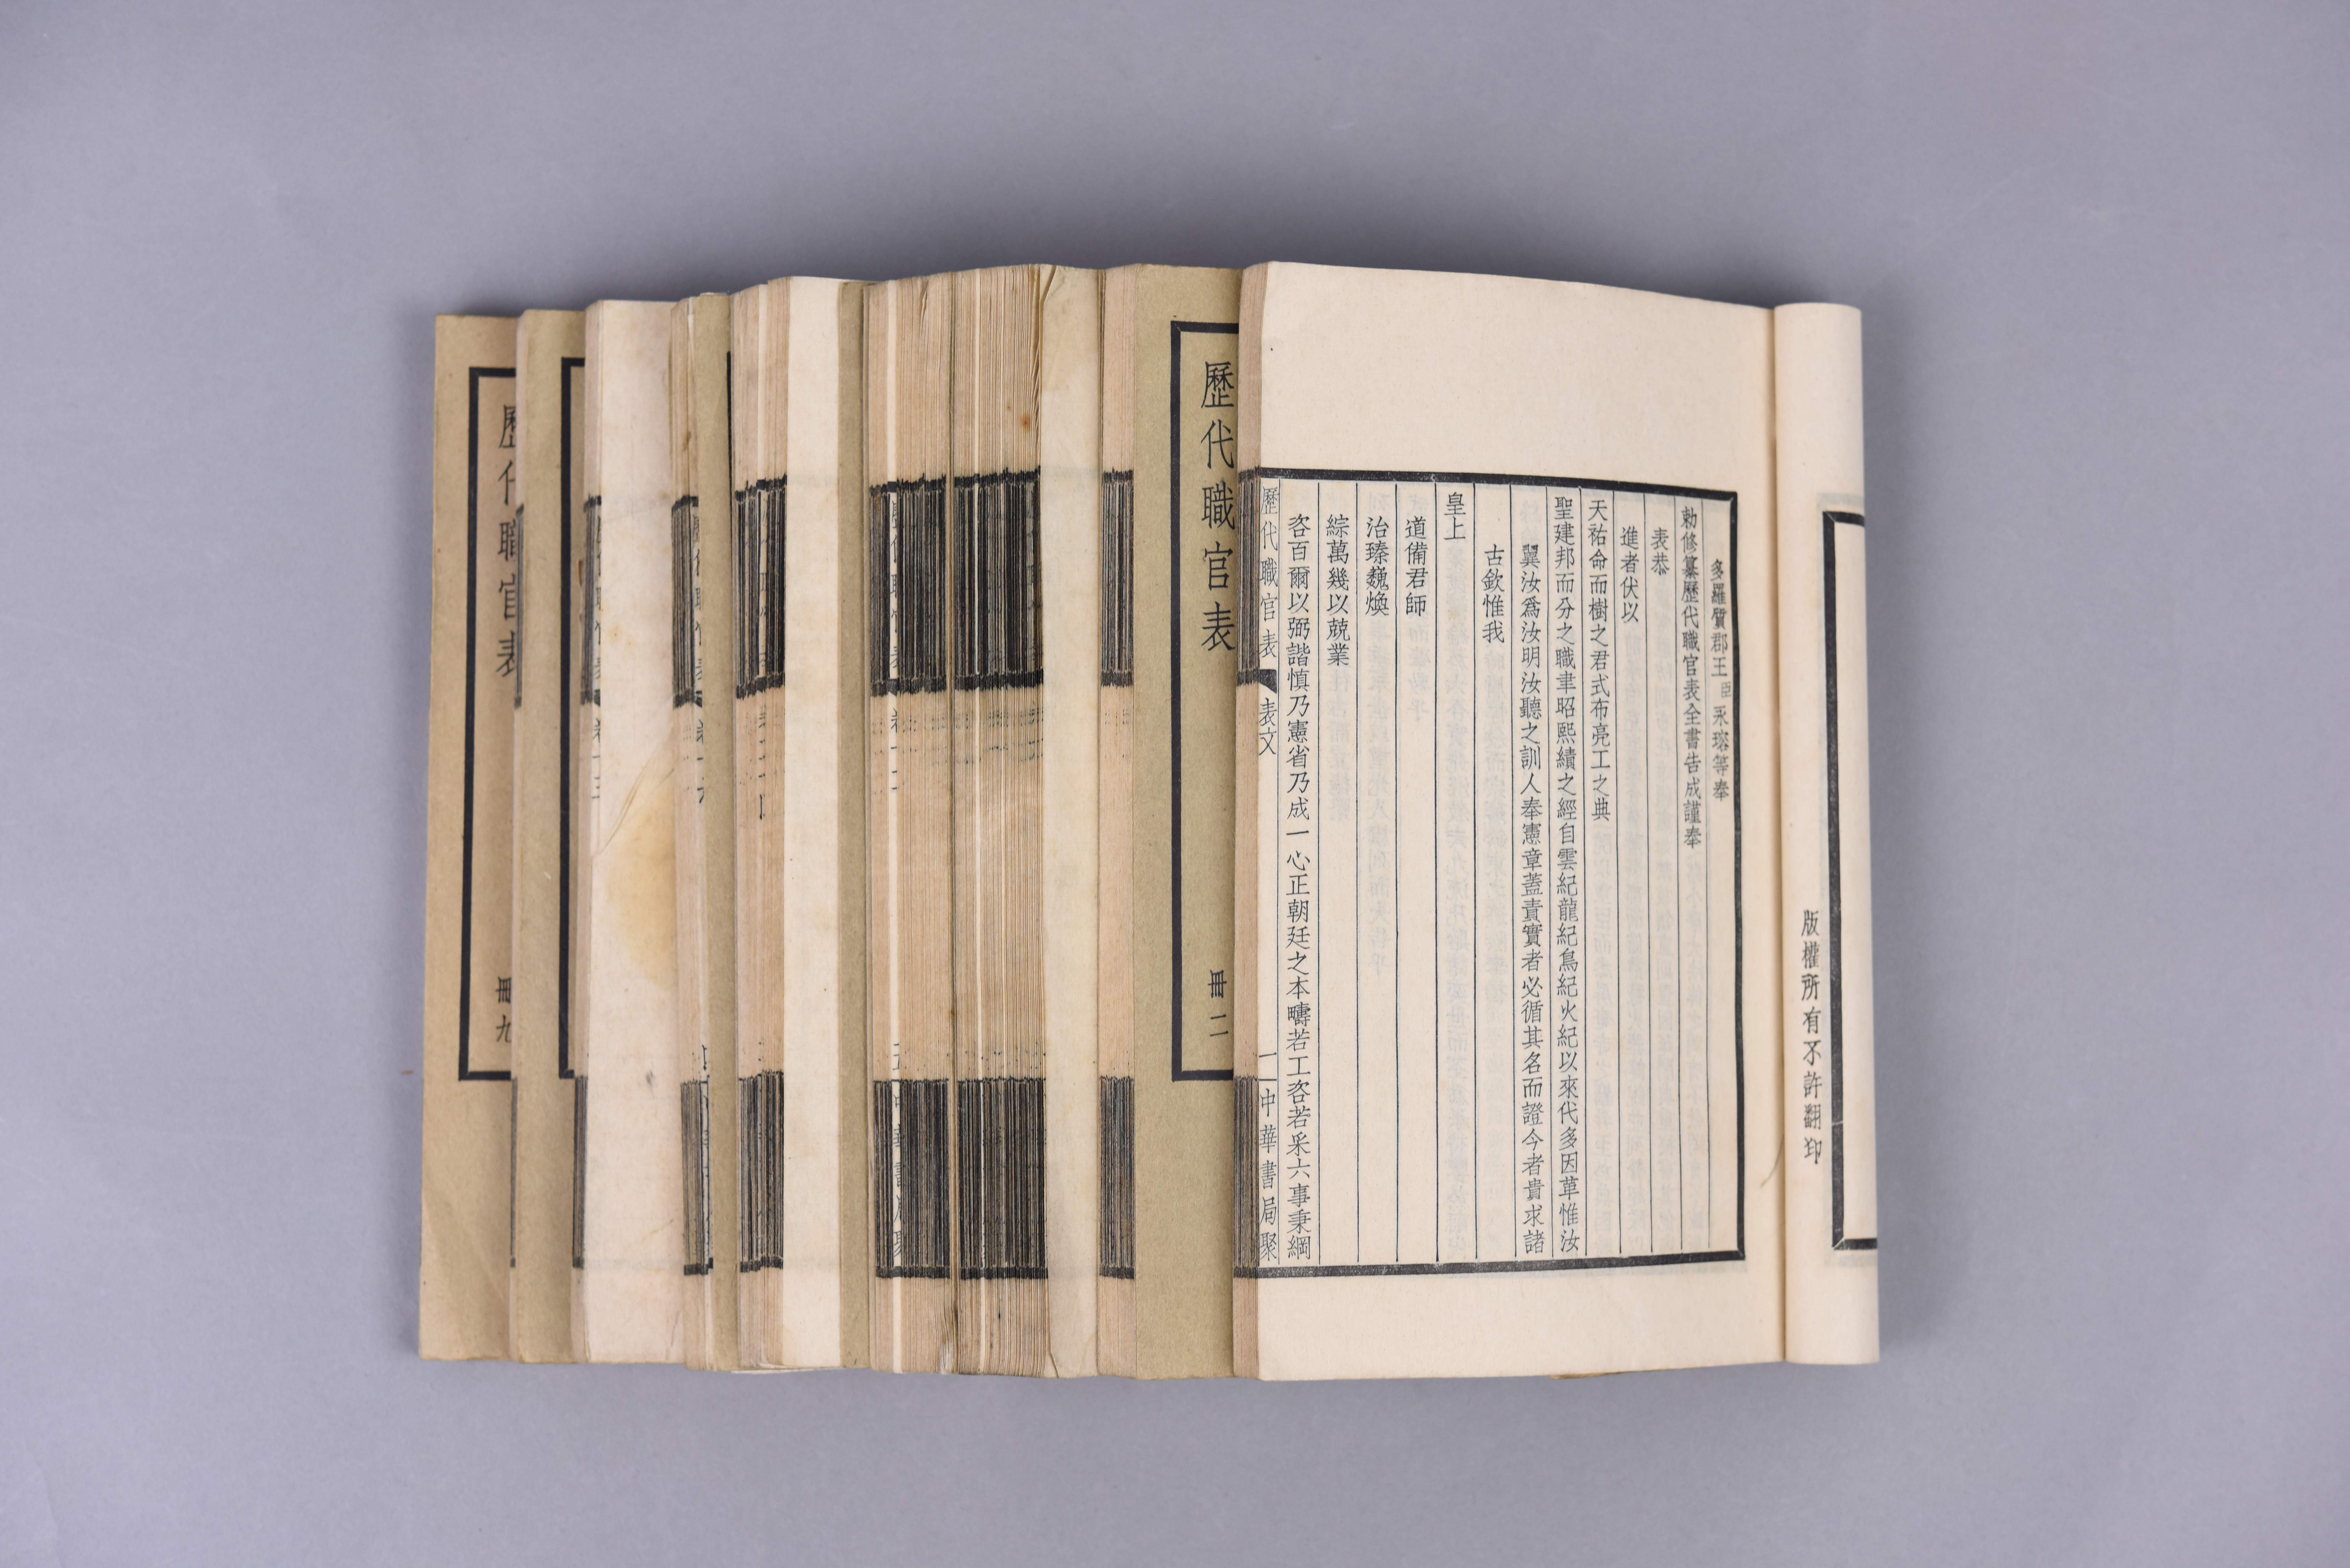 版權所有不許翻印
多羅質郡王臣永瑢等奉
勅修纂歷代職官表全書告成謹奉
表恭
進者伏以
天祐命而樹之君式布亮工之典
聖建邦而分之職聿昭熙績之經自雲紀龍紀鳥紀火紀以來代多因革惟汝
翼汝爲汝明汝聽之訓人奉憲章蓋責實者必循其名而證今者貴求諸
古欽惟我
皇上
道備君師
治臻巍煥
綜萬幾以兢業
咨百爾以弼諧慎乃憲省乃成一心正朝廷之本疇若工咨若采六事秉綱
歷代職官表 表文 一 中華書局聚
歷代職官表
冊二
歷代職官表
冊九